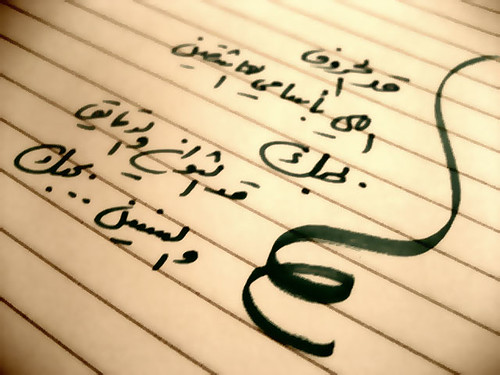 قد الحروف
اللي بأسامي العاشقين
بحبك
قد الثواني والدقايق
والسنين... بحبك